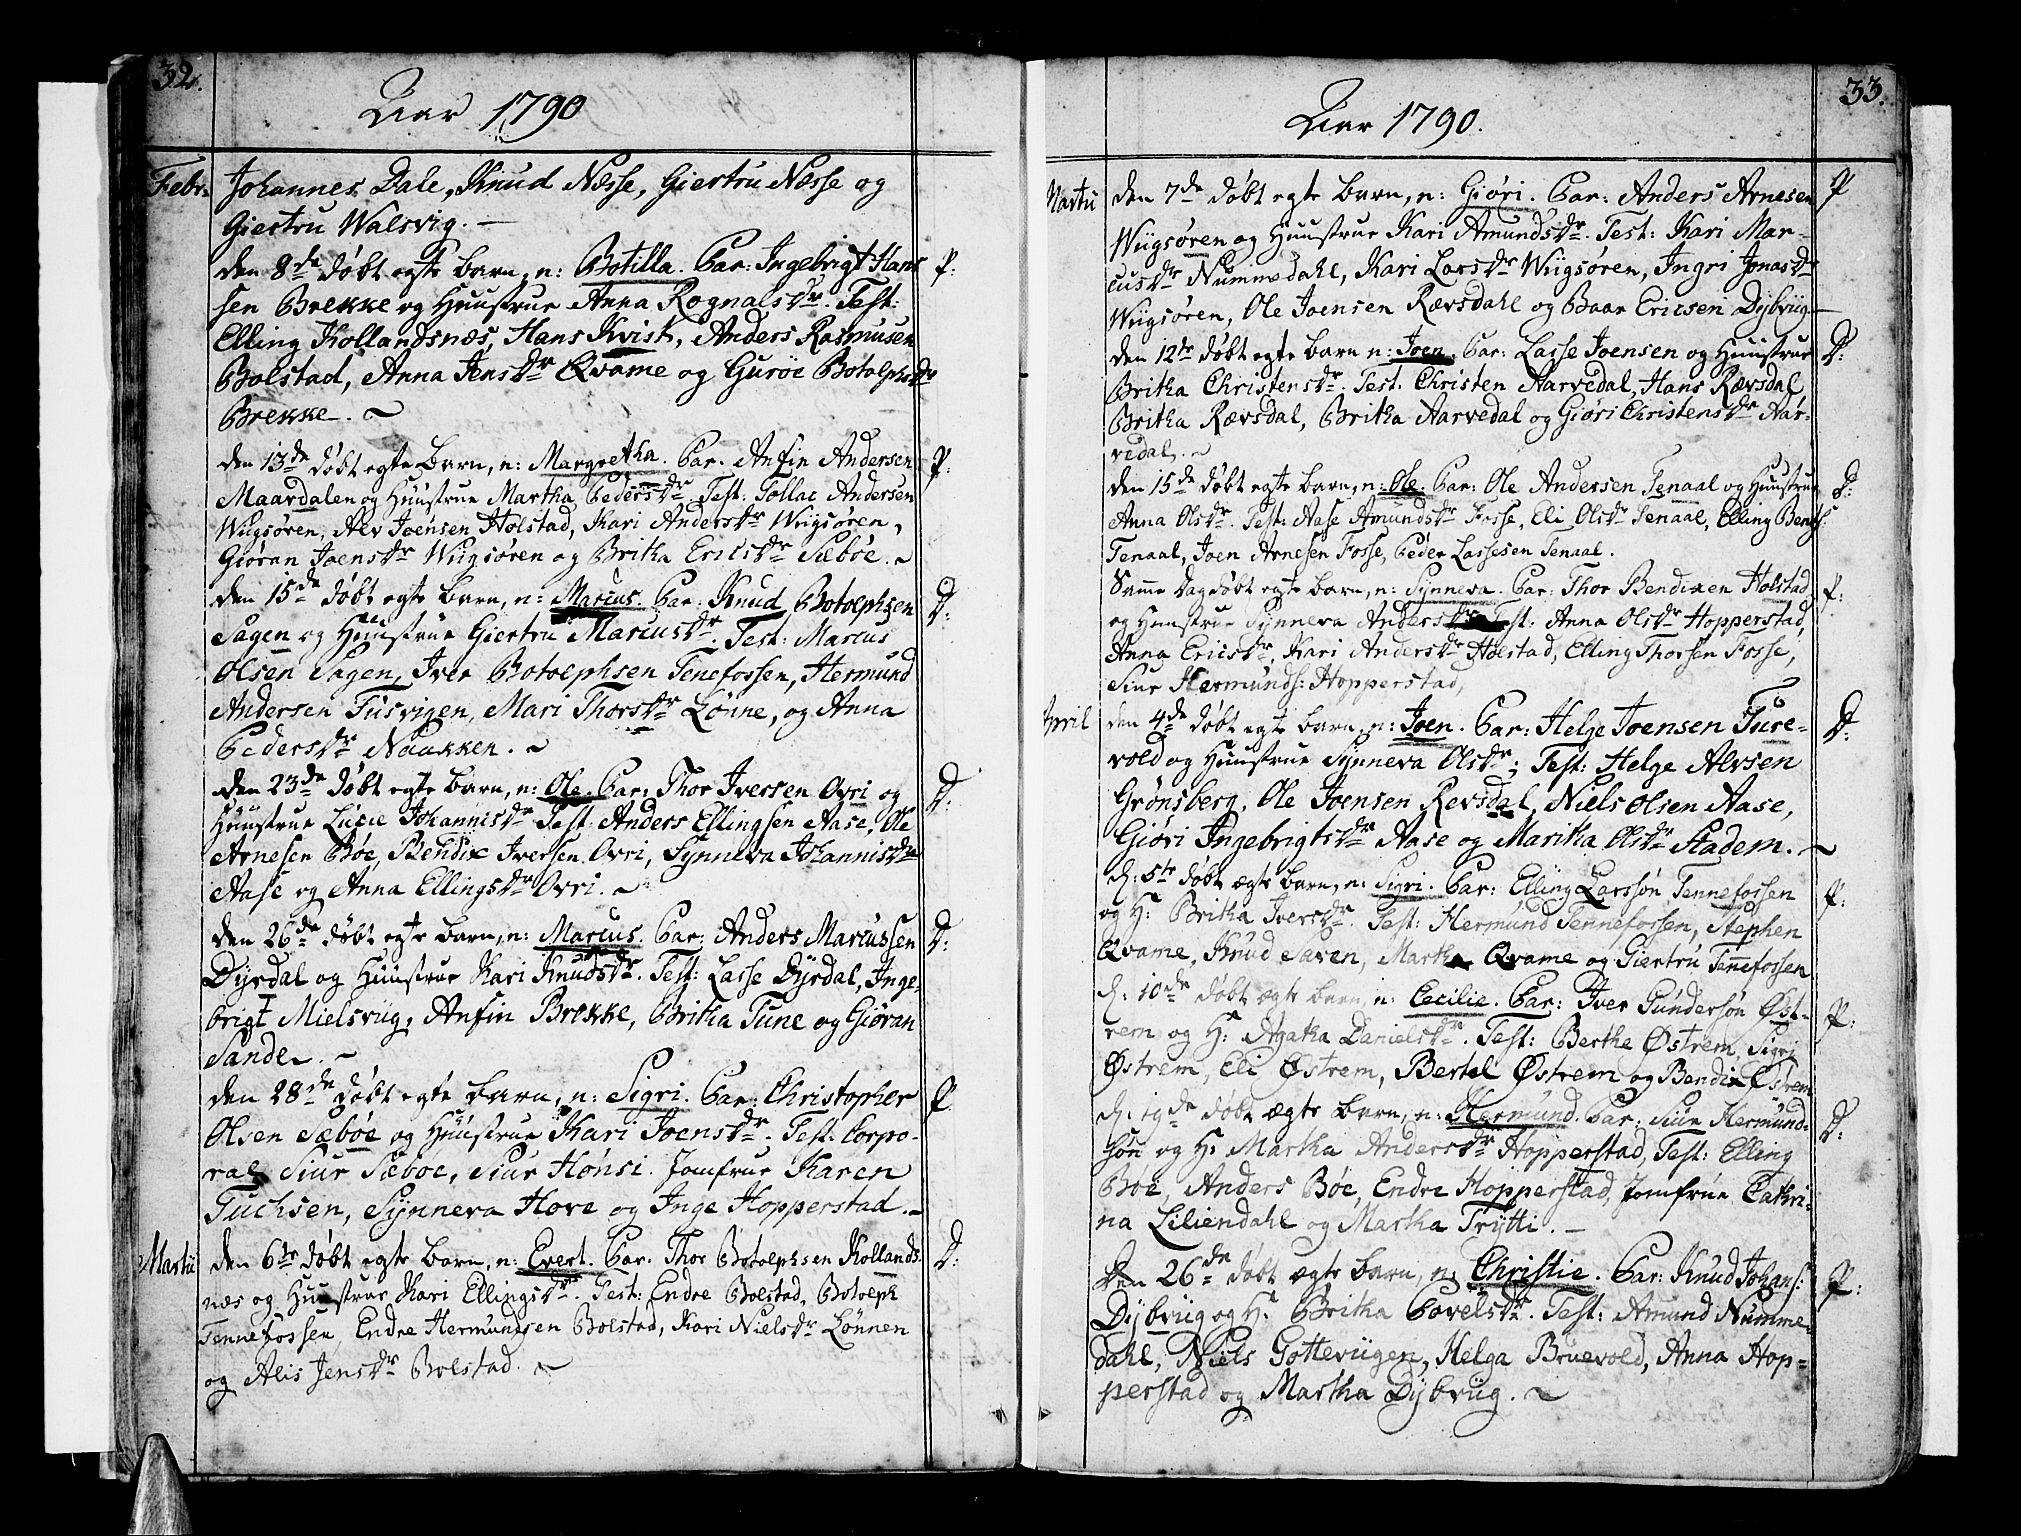 32.
Aar 1790
Febr.
Johannes Dale, Knud Næsse, Giertru Næsse og
Giertru Walsvig. —
den 8de døbt egte barn, n: Botilla. Par: Ingebrigt Han-
sen Brekke og Huustrue Anna Rognalsdr. Test:
Elling Hollandsnæs, Hans Kvist, Anders Rasmusen
Bolstad, Anna Jensdr Qvame og Guröe Botolphsdr
Brekke. ~
P:
den 13de døbt egte Barn, n: Margretha. Par. Anfin Andersen
Maardalen og Huustrue Martha Pedersdr. Test: Tollac Andersen
Wiigsøren, Alv Joensen Holstad, Kari Andersdr Wiigsøren,
Giøran Joensdr Wiigsøren og Britha Ericsdr Sæbøe. ~
P:
den 15de døbt egte barn, n: Marcus. Par: Knud Botolphsen
Sagen og Huustrue Giertru Marcusdr. Test: Marcus
Olsen Sagen, Iver Botolphsen Tenefossen, Hermund
Andersen Fusvigen, Mari Thorsdr Lønne, og Anna
Pedersdr Naakken. ~
D:
den 23de døbt egte barn, n: Ole. Par: Thor Iversen Ovri og
Huustrue Lucie Johannisdr. Test: Anders Ellingsen Aase, Ole
Arnesen Bøe, Bendix Iversen Ovri, Synneva Johannisdr
Aase og Anna Ellingsdr Ovri. ~
D:
den 26de døbt egte barn, n: Marcus. Par: Anders Marcussen
Dyrdal og Huustrue Kari Knudsdr. Test: Lasse Dyrdal, Inge-
brigt Mielsviig, Anfin Brekke, Britha Tune og Giøran
Sande. ~
D:
den 28de døbt egte barn, n: Sigri. Par: Christopher
Olsen Sæbøe og Huustrue Kari Joensdr. Test: Corpo-
ral Siur Sæbøe, Siur Hønsi. Jomfrue Karen
Tuchsen, Synneva Hove og Inge Hopperstad. ~
P
Martii
den 6te døbt egte barn, n: Evert. Par. Thor Botolphsen Hollands-
næs og Huustrue Kari Ellingsdr. Test: Endre Bolstad, Botolph
Tennefossen, Endre Hermundsen Bolstad, Kari Nielsdr Lönnen
og Alis Jensdr Bolstad. ~
D:
33.
Aar 1790.
Martii
den 7de døbt egte barn, n: Giøri. Par: Anders Arnesen
Wiigsøren og Huustrue Kari Amundsdr. Test: Kari Mar-
cusdr Nummedahl, Kari Larsdr Wiigsøren, Ingri Jonasdr
Wiigsøren, Ole Joensen Rævsdahl og Baar Ericsen Dybviig —
P
den 12te døbt egte barn n: Joen. Par: Lasse Joensen og Huustrue
Britha Christensdr. Test: Christen Aarvedal, Hans Rævsdal
Britha Rævsdal, Britha Aarvedal og Giøri Christensdr Aar-
vedal. ~
D:
den 15de døbt egte barn, n: Ole. Par: Ole Andersen Tenaal og Huustrue
Anna Olsdr. Test: Aase Amundsdr Fosse, Eli Olsdr Tenaal, Elling Bents:
Tenaal, Joen Arnesen Fosse, Peder Lassesen Tenaal.
D:
Samme Dag døbt egte barn, n: Synneva. Par: Thor Bendixen Holstad
og Huustrue Synneva Andersdr Test: Anna Olsdr Hopperstad,
Anna Ericsdr, Kari Andersdr Holstad, Elling Thorsen Fosse,
Siur Hermunds: Hopperstad,
P:
April
den 4de døbt egte barn, n: Joen. Par: Helge Joensen Ture-
vold og Huustrue Synneva Olsdr; Test: Helge Alvsen
Grønsberg, Ole Joensen Revsdal, Niels Olsen Aase,
Giøri Ingebrigtsdr Aase og Maritha Olsdr Stadem. ~
D:
d: 5te døbt ægte barn, n: Sigri. Par: Elling Larssøn Tennefossen
og H: Britha Iversdr. Test: Hermund Tennefossen, Stephen
Qvame, Knud Saven, Martha Qvame og Giertru Tennefossen
P:
d: 10de døbt ægte barn, n: Cecilie. Par: Iver Gundersøn Øst-
rem og H: Agatha Danielsdr. Test: Berthe Østrem, Sigri
Østrem, Eli Østrem, Bertel Østrem og Bendix Østrem
P:
d: 19de døbt ægte barn, n: Hermund. Par: Siur Hermund-
søn og H: Martha Andersdr Hopperstad, Test: Elling
Bøe, Anders Bøe, Endre Hopperstad, Jomfrue Cathri-
na Liliendahl og Martha Trytti. —
D:
Den 26de døbt ægte barn, n: Christie. Par: Knud Johans:
Dybviig og H. Britha Povelsdr. Test: Amund Numme-
dahl, Niels Gotteviigen, Helga Bruevold, Anna Hop-
perstad og Martha Dybviig. ~
P: